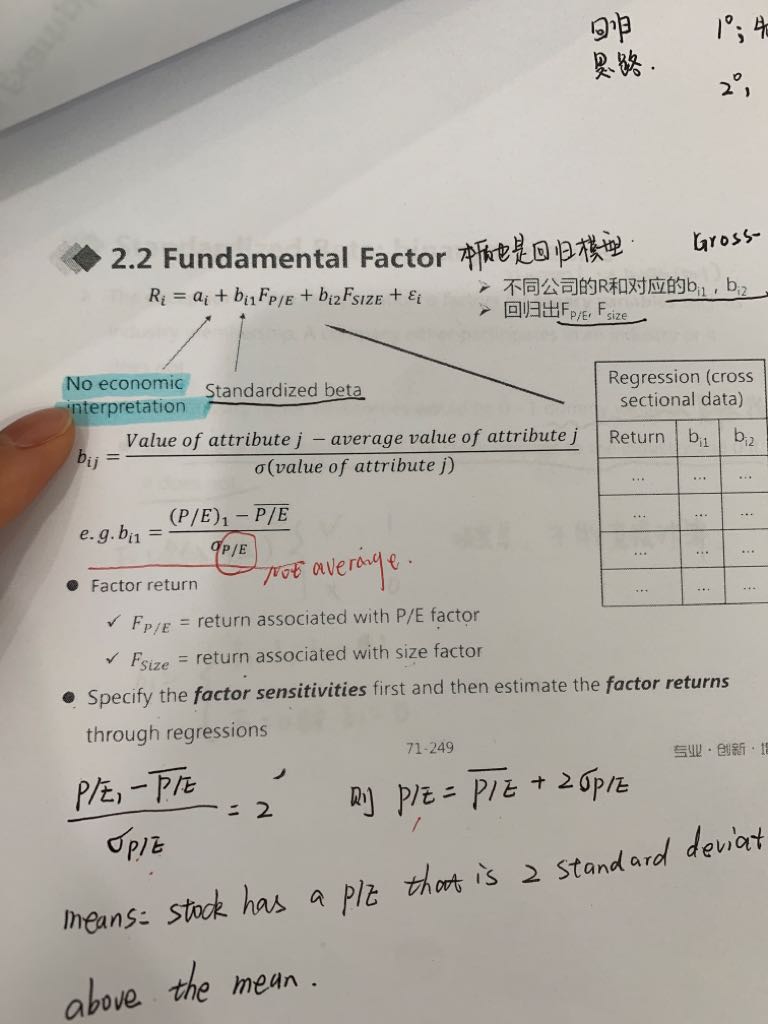 回归 1°;
思路. 2°,
2.2 Fundamental Factor 本质也是回归模型. Gross-
R_i = a_i + b_{i1}F_{P/E} + b_{i2}F_{SIZE} + ε_i
➢ 不同公司的R和对应的b_{i1}, b_{i2}
➢ 回归出F_{P/E}, F_{size}
No economic
interpretation
Standardized beta
b_{ij} = (Value of attribute j − average value of attribute j) / σ(value of attribute j)
Regression (cross
sectional data)
Return b_{i1} b_{i2}
... ... ...
... ... ...
... ... ...
... ... ...
e.g. b_{i1} = ((P/E)_1 − \overline{P/E}) / σ_{P/E}
Not average.
● Factor return
✓ F_{P/E} = return associated with P/E factor
✓ F_{Size} = return associated with size factor
● Specify the factor sensitivities first and then estimate the factor returns
through regressions
71-249
专业·创新·
(P/E_1 − \overline{P/E}) / σ_{P/E} = 2 则 P/E = \overline{P/E} + 2σ_{P/E}
means: stock has a P/E that is 2 standard deviat
above the mean.